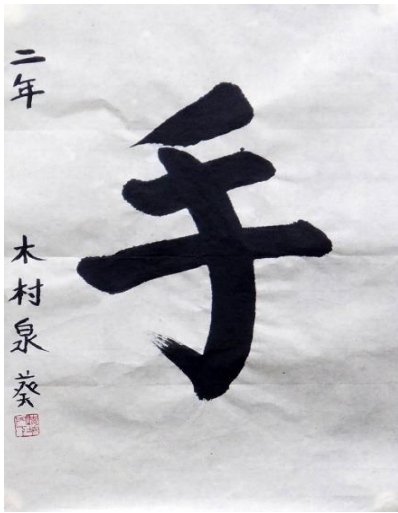 手
二年 木村泉葵